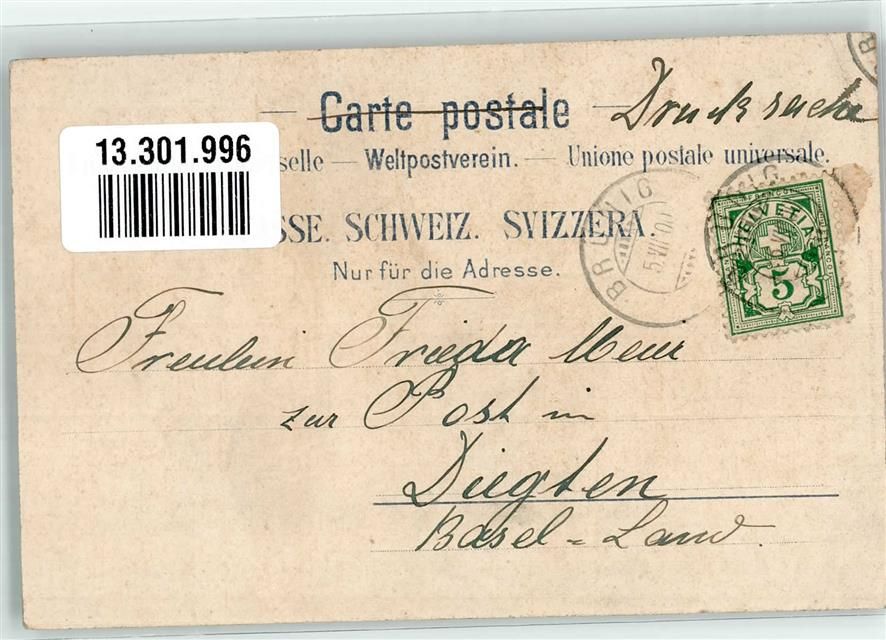 Carte postale Drucksache
13.301.996
selle — Weltpostverein. — Unione postale universale.
SSE. SCHWEIZ. SVIZZERA.
Nur für die Adresse.
BRÜNIG
5.VII.00
HELVETIA
5
Freulein Frieda Meier
zur Post in
Diegten
Basel=Land.